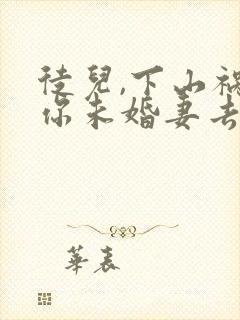 徒兒,下山禍
你未婚妻去
華表